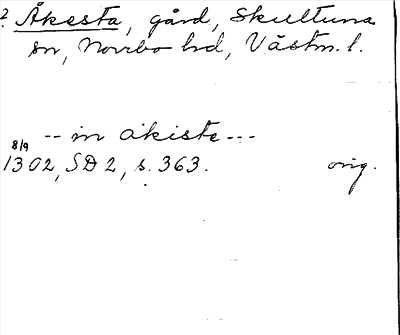 ? Åkesta, gård, Skultuna
sn, Norrbo hd, Västm. l.
-- in akiste ---
8/9
1302, SD 2, s. 363. orig.